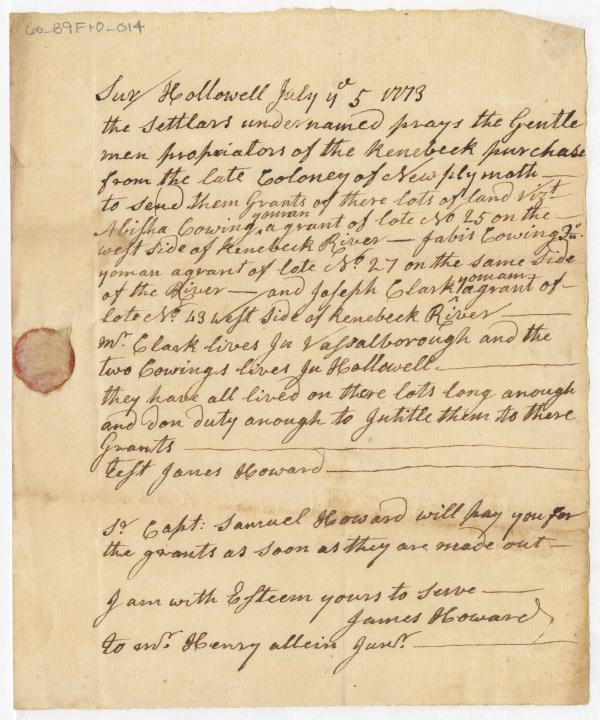 60-B9F10-014
Sur/ Hollowell July ye 5 1773
the settlars undernamed prays the Gentle
men propriators of the Kenebeck purchase
from the late Coloney of New plymoth
to send them Grants of there lots of land Vizt
Abisha Cowing yoman a grant of late No 25 on the
west side of Kenebeck River — Jabis Cowing Ju.
yoman a grant of late No. 27 on the same side
of the River — and Joseph Clark yoman a grant of
late No. 43 west side of Kenebeck River
mr Clark lives In Vassalborough and the
two Cowings lives In Hollowell.
they have all lived on there lots long anough
and don duty anough to Intitle them to there
Grants
test James Howard
Sr Capt: Samuel Howard will pay you for
the grants as soon as they are made out
I am with Esteem yours to serve
James Howard
to mr. Henry allein Junr.